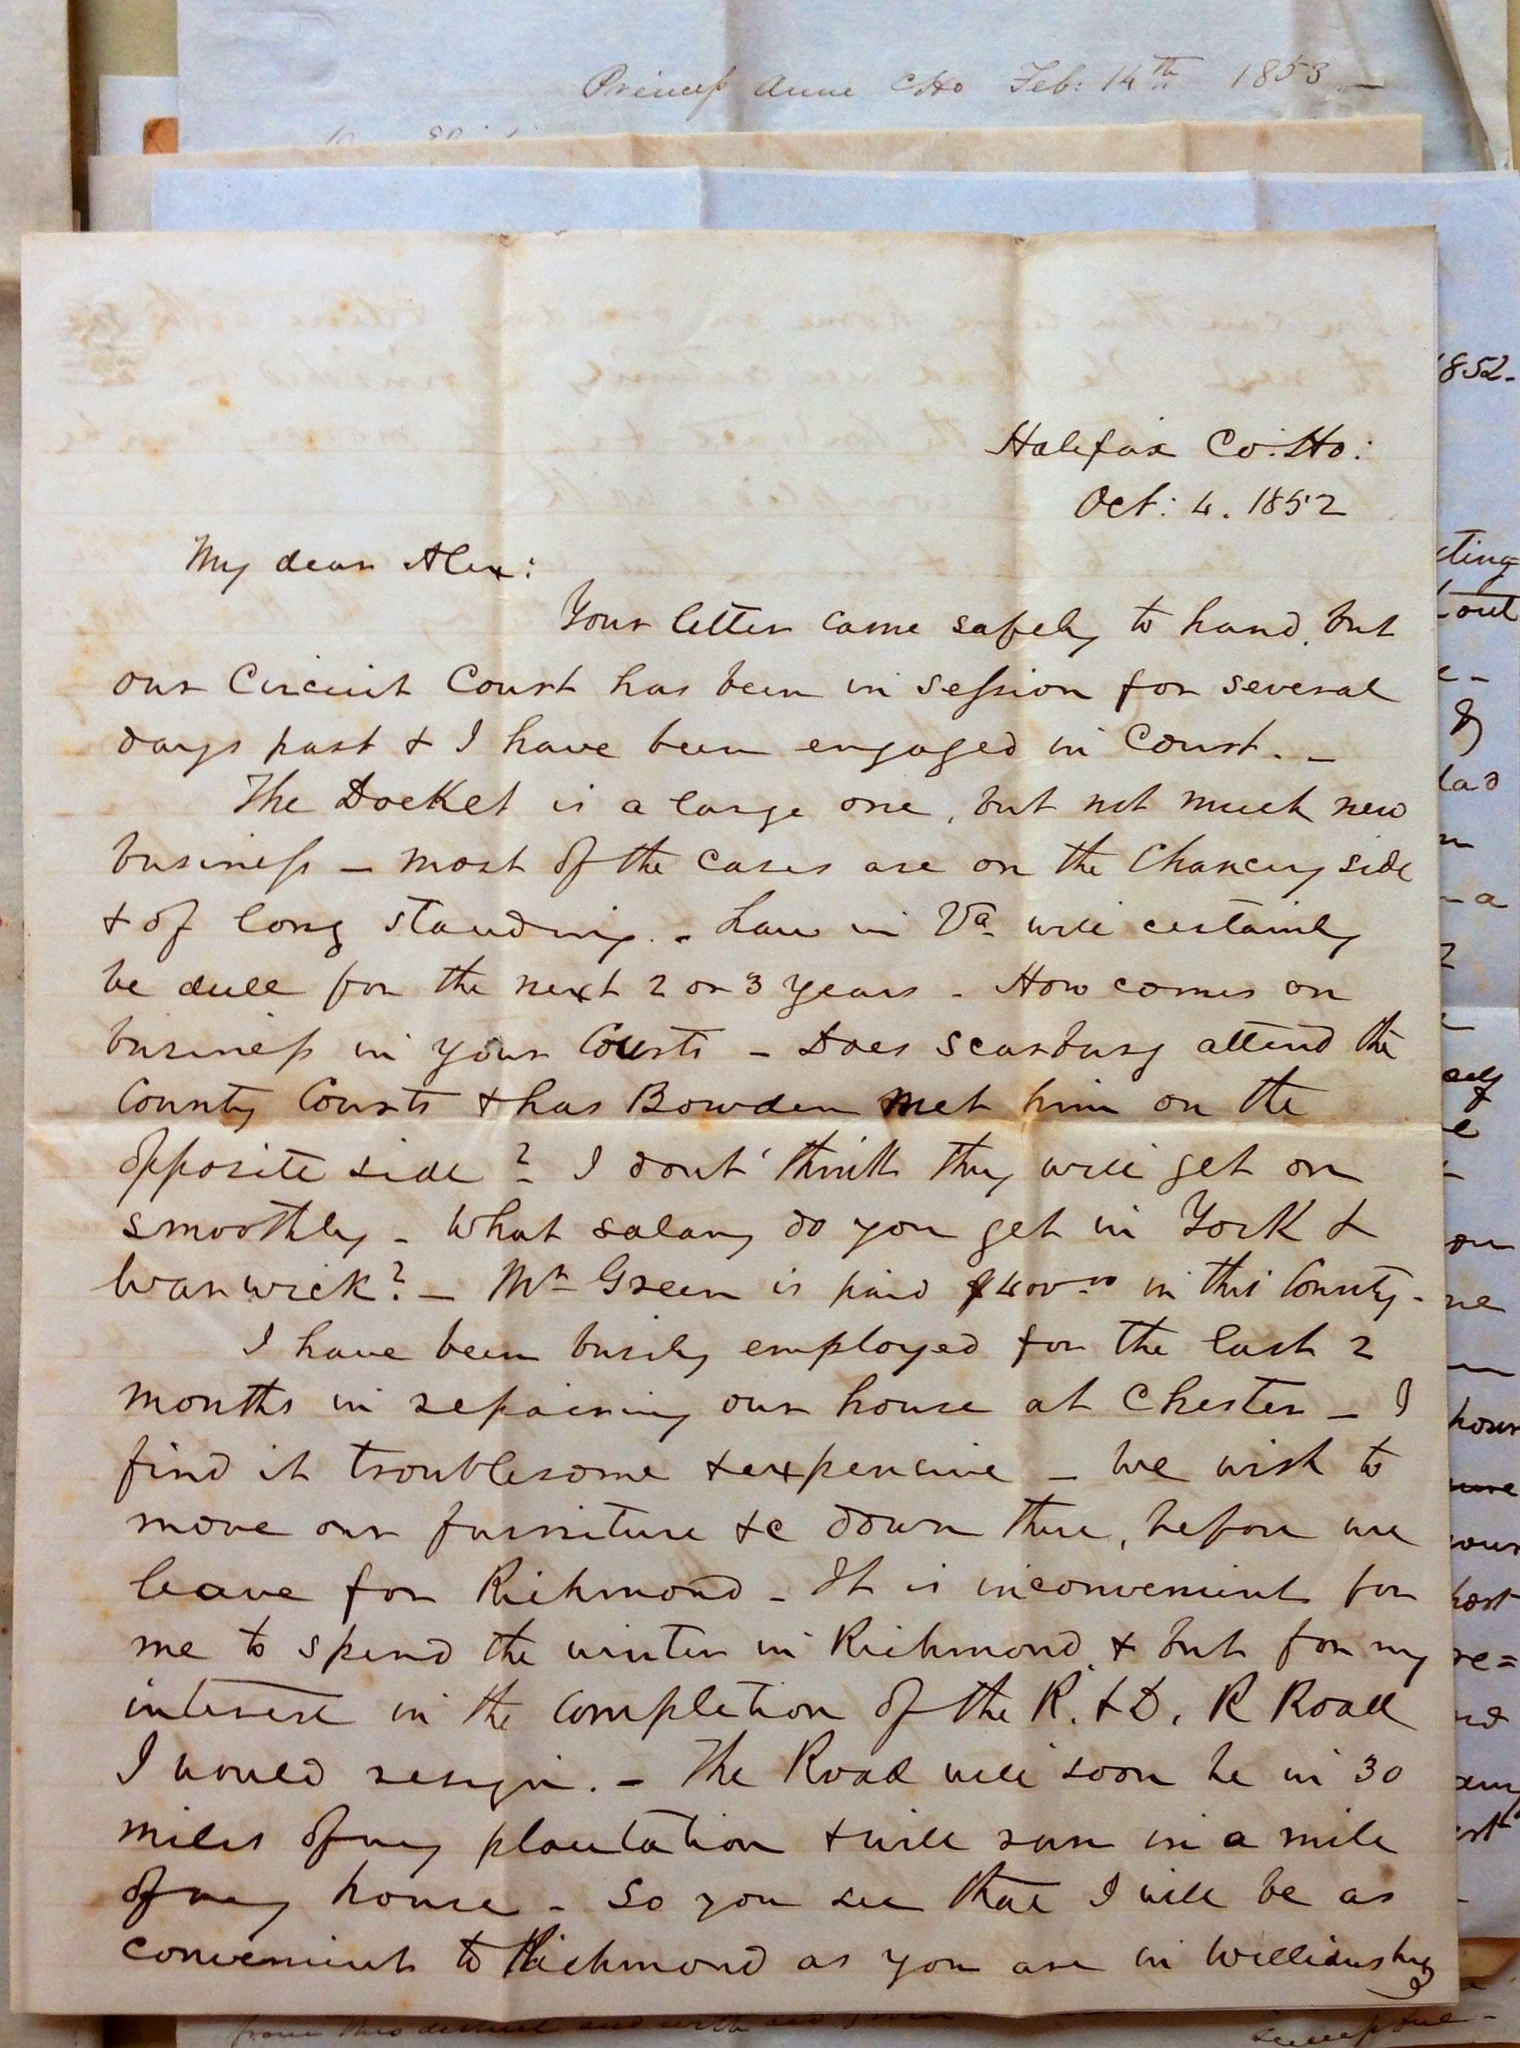 Princess Anne CHo Feb: 14th 1853 —
1852.
Halifax Co: Ho:
Oct: 4. 1852
My dear Alex:
Your letter came safely to hand, but
our Circuit Court has been in session for several
days past & I have been engaged in Court. —
The Docket is a large one, but not much new
business — most of the cases are on the Chancery side
& of long standing. — Law in Va. will certainly
be dull for the next 2 or 3 years — How comes on
business in your Courts — Does Scarburg attend the
County Courts & has Bowden met him on the
opposite side? I dont' think they will get on
smoothly — What salary do you get in York &
Warwick? — Mr Green is paid $400.00 in this County —
I have been busily employed for the last 2
months in repairing our house at Chester — I
find it troublesome & expensive — We wish to
move our furniture &c down there, before we
leave for Richmond — It is inconvenient for
me to spend the winter in Richmond, & but for my
interest in the completion of the R. & D. R Road
I would resign. — The Road will soon be in 30
miles of my plantation & will run in a mile
of my house — So you see that I will be as
convenient to Richmond as you are in Williamsburg